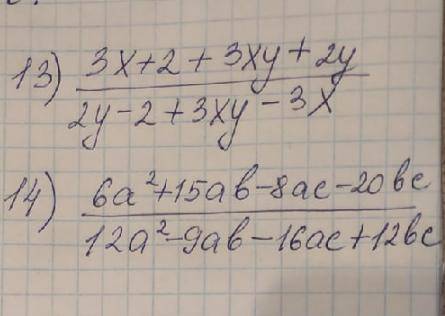 13) 3x+2+3xy+2y
2y-2+3xy-3x
14) 6a²+15ab-8ac-20bc
12a²-9ab-16ac+12bc